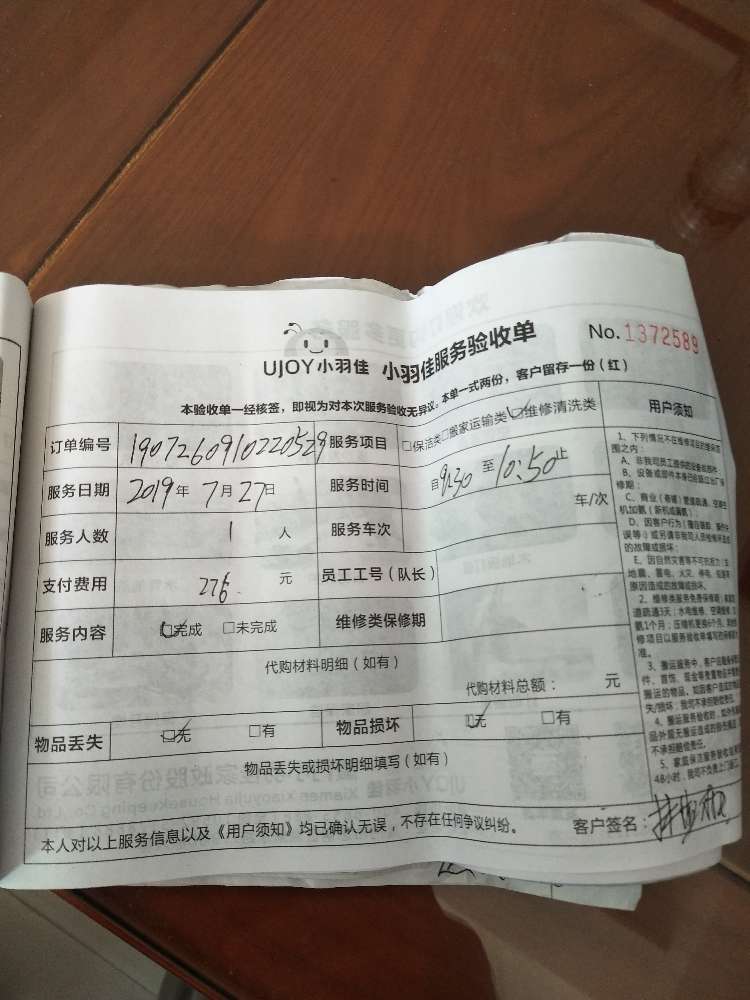 UJOY小羽佳 小羽佳服务验收单 No.1372589
本验收单一经核签，即视为对本次服务验收无异议。本单一式两份，客户留存一份（红）
订单编号 1907260910220529 服务项目 □保洁类□搬家运输类□维修清洗类
服务日期 2019年7月27日 服务时间 自9:30至10:50止
服务人数 1 人 服务车次 车/次
支付费用 276 元 员工工号（队长）
服务内容 □完成 □未完成 维修类保修期
代购材料明细（如有）
代购材料总额： 元
物品丢失 □无 □有 物品损坏 □无 □有
物品丢失或损坏明细填写（如有）
本人对以上服务信息以及《用户须知》均已确认无误，不存在任何争议纠纷。 客户签名：
用户须知
1、下列情况不在维修项目的维保范
围之内：
A、非我司员工提供的设备或部件
B、设备或部件本身已经超过出厂保
修期；
C、商业（奇博）管道疏通、空调主
机加氨（新机或漏氨）；
D、因客户行为
误等）或另请非我司人员维修所造成
的故障或损坏；
E、因自然灾害等不可抗力
地震、雷电、火灾、停电
原因造成的故障或损坏。
2、维修类服务免费保修期：
道疏通3天；水电维修、空调
氨1个月；压缩机更换6个月
修项目以服务验收单填写的保修期为
准。
3、搬运服务中，客户应
件、首饰、现金等贵重物品
搬运的物品，如因客户造成
失/损坏，我司不承担赔偿责任。
4、搬运服务验收时，如
品外观无搬运造成的
不承担赔偿责任。
5、家庭保洁服务验收
48小时，我司不负责上门返工